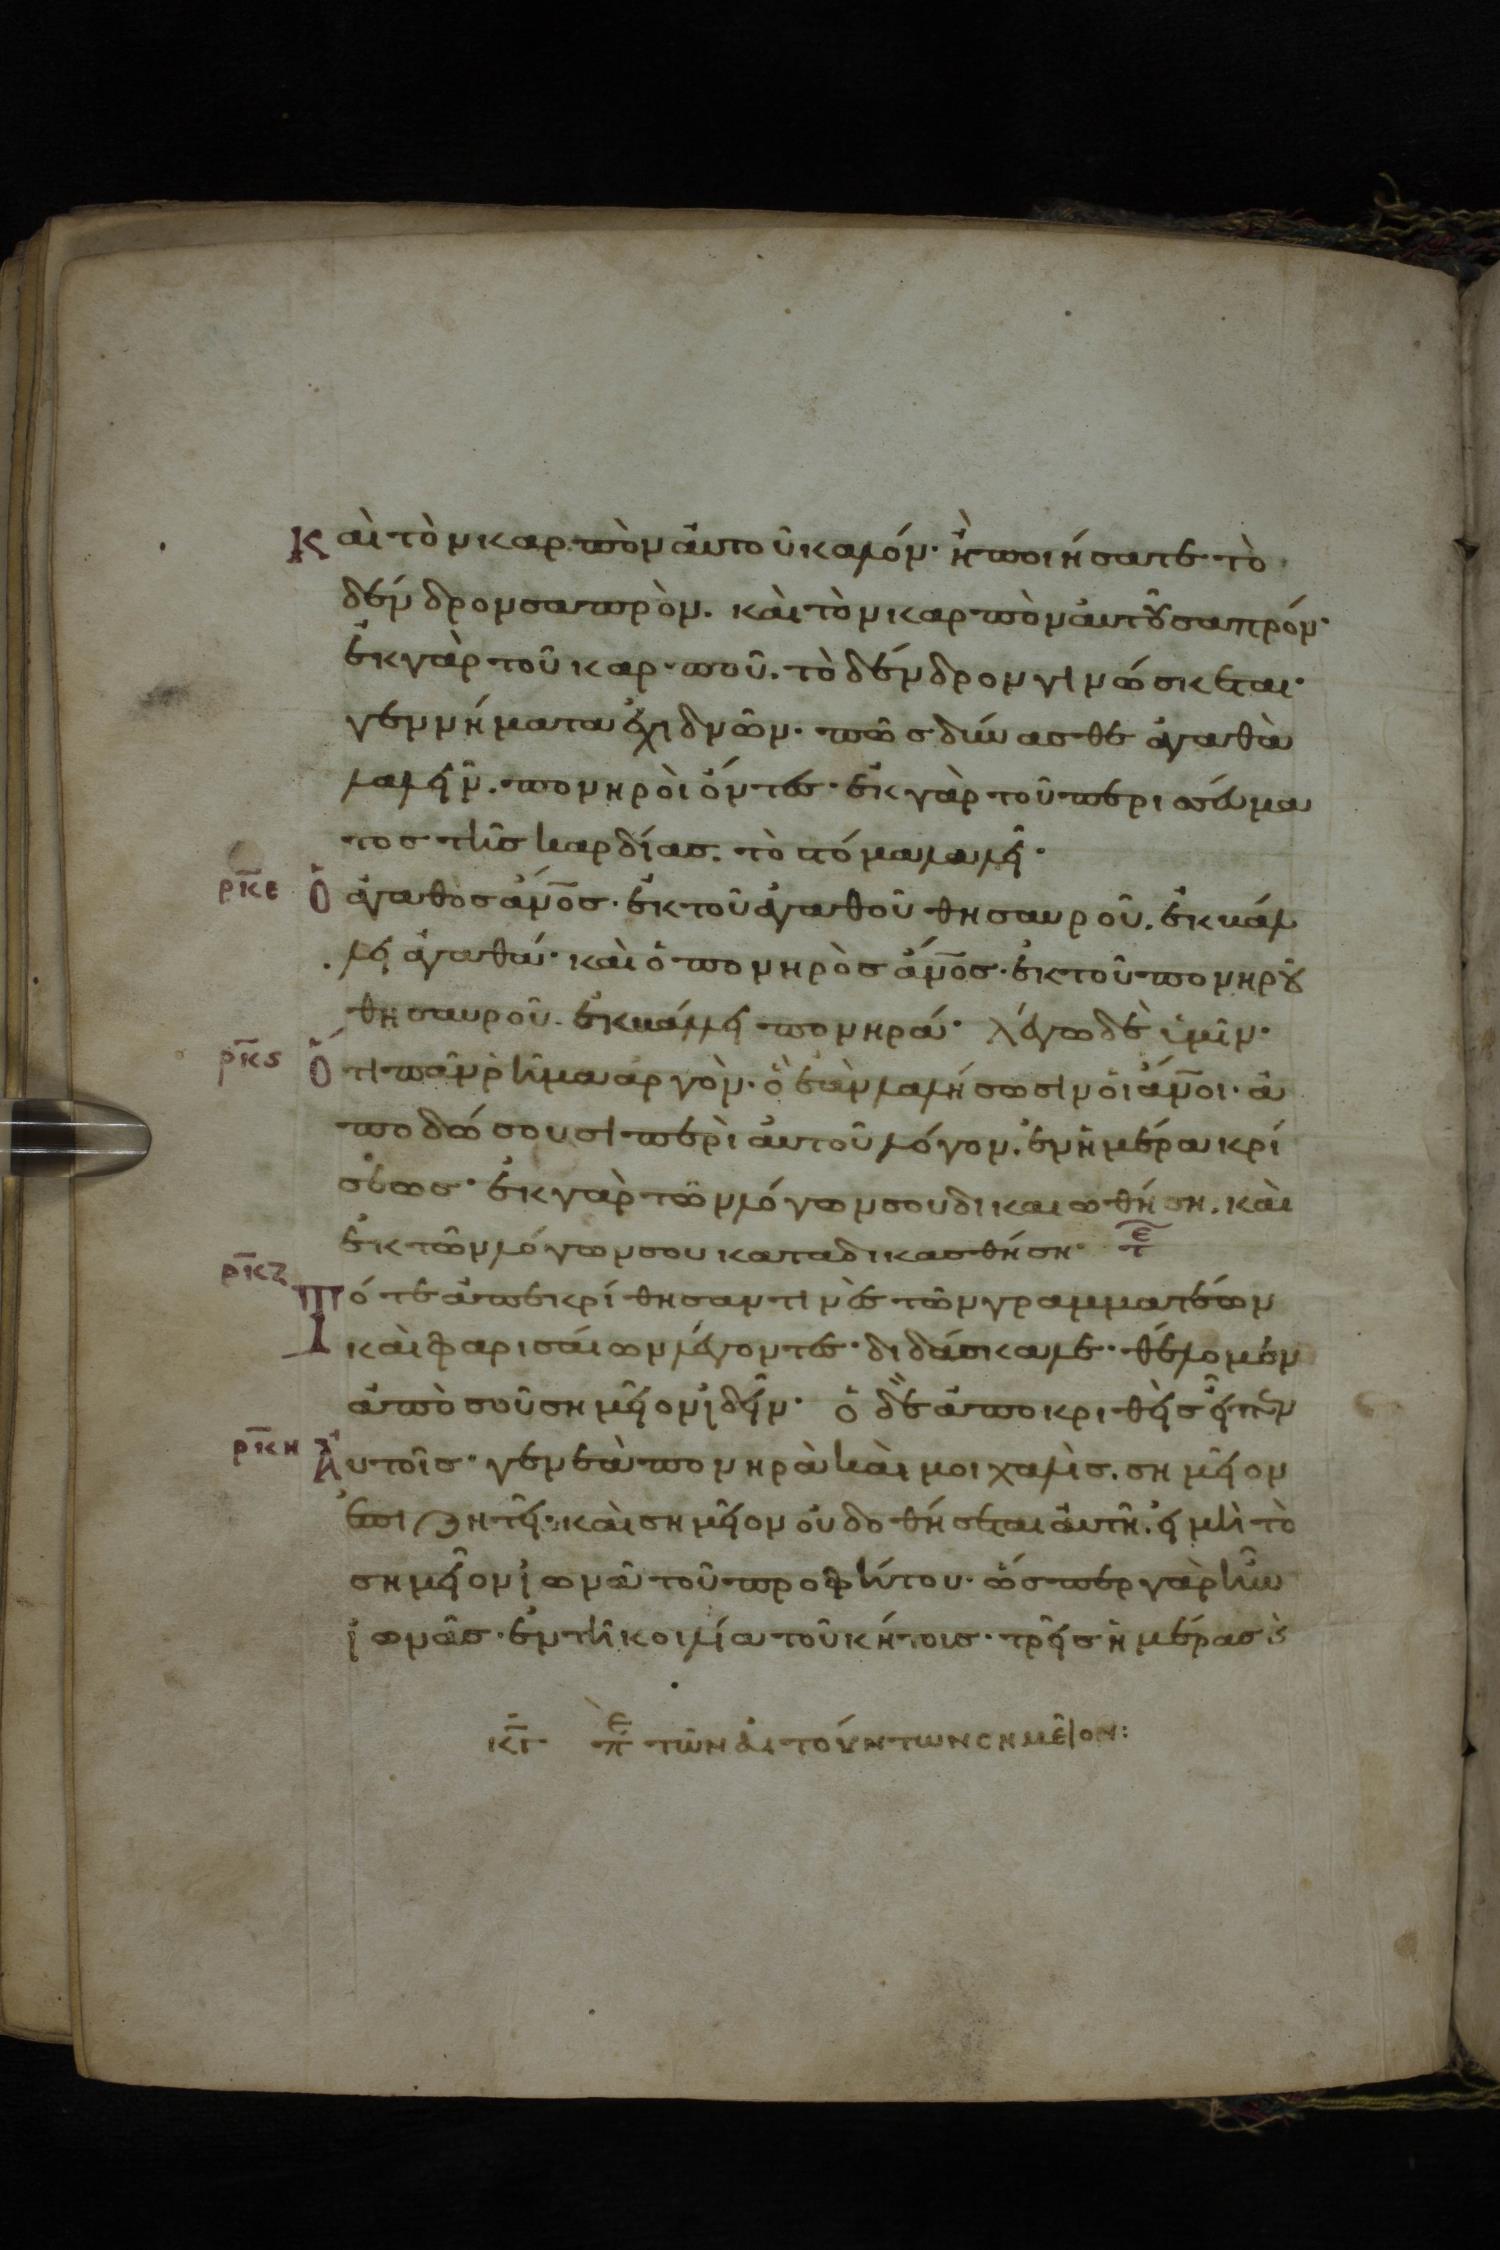 Καὶ τὸν καρπὸν ἀυτοῦ καλόν· ἢ ποιήσατε τὸ
δένδρον σαπρὸν. κὰι τὸν καρπὸν ἀυτοῦ σαπρόν·
ἐκ γὰρ τοῦ καρποῦ. τὸ δένδρον γινώσκεται·
γεννήματα ἐχιδνῶν· πῶς δύνασθε ἀγαθὰ
λαλεῖν. πονηρὸι ὄντες· ἐκ γὰρ τοῦ περισσέυμα
τος τῆς καρδίας. τὸ στόμα λαλεῖ·
ρκε Ὁ ἀγαθος ἄνος· ἐκ τοῦ ἀγαθοῦ θησαυροῦ. ἐκβάλ
λει ἀγαθά· κὰι ὁ πονηρὸς ἄνος· ἐκ τοῦ πονηροῦ
θησαυροῦ. ἐκβάλλει πονηρά· λέγω δὲ ὑμῖν·
ρκϛ Ὅτι πᾶν ῥῆμα αργὸν· ὃ ἐὰν λαλήσωσιν ὁι ἄνοι· ἀ
ποδώσουσι περὶ ἀυτοῦ λόγον. ἐν ἡμέρα κρί
σεως· ἐκ γὰρ τῶν λόγων σου δικαιωθήση. κὰι
ἐκ τῶν λόγων σου καταδικασθήση· τε
ρκζ Τότε ἀπεκρίθησαν τινὲς τῶν γραμματέων
κὰι φαρισάιων λέγοντες· διδάσκαλε· θέλομεν
ἀπὸ σοῦ σημεῖον ἰδεῖν· ὁ δὲ ἀποκριθεὶς εἶπεν
ρκη Ἀυτοῖς· γενεὰ πονηρὰ κὰι μοιχαλὶς. σημεῖον
ἐπιζητεῖ· κὰι σημεῖον ὀυ δοθήσεται ἀυτῆ. εἰ μὴ τὸ
σημεῖον ἰωνᾶ τοῦ προφήτου· ὥσπερ γὰρ ἦν
ἰωνᾶς· ἐν τῆ κοιλία τοῦ κήτους· τρεῖς ἡμέρας κὰι
κγ πε τῶν ἀιτούντων σημεῖον: